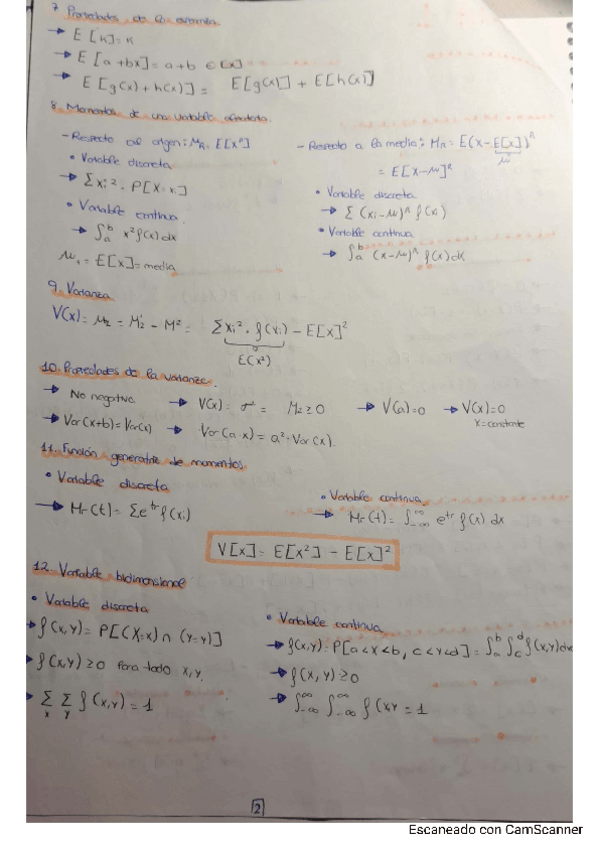 7. Propiedades de la esperanza
→ E[k]=k
→ E[a+bx]=a+b E[x]
→ E[g(x)+h(x)] = E[g(x)] + E[h(x)]
8. Momentos de una variable aleatoria.
- Respecto al origen: MR = E[x^R]
• Variable discreta
→ Σxi². P[X=xi]
• Variable continua.
→ ∫_a^b x² f(x) dx
μ1 = E[x] = media
- Respecto a la media: MR = E(x-E[x])^R
μ
= E[x-μ]^R
• Variable discreta
→ Σ (xi-μ)^R f(xi)
• Variable continua
→ ∫_a^b (x-μ)^R f(x) dx
9. Varianza
V(x) = μ2 = M'2 - M² = Σxi². f(xi) - E[x]²
E(x²)
10. Propiedades de la varianza.
→ No negativa → V(x) = σ² = M2 ≥ 0 → V(a)=0 → V(x)=0
x=constante
→ Var(x+b) = Var(x) → Var(a·x) = a²·Var(x).
11. Función generatriz de momentos.
• Variable discreta
→ Mr(t) = Σe^tr f(xi)
• Variable continua
→ Mr(t) = ∫_-∞^∞ e^tr f(x) dx
V[x] = E[x²] - E[x]²
12. Variable bidimensional
• Variable discreta
→ f(x,y) = P[(X=x) ∩ (Y=y)]
→ f(x,y) ≥ 0 para todo x,y.
→ Σx Σy f(x,y) = 1
• Variable continua
→ f(x,y) = P[a<x<b, c<y<d] = ∫_a^b ∫_c^d f(x,y)dx
→ f(x,y) ≥ 0
→ ∫_-∞^∞ ∫_-∞^∞ f(x,y = 1
2
Escaneado con CamScanner